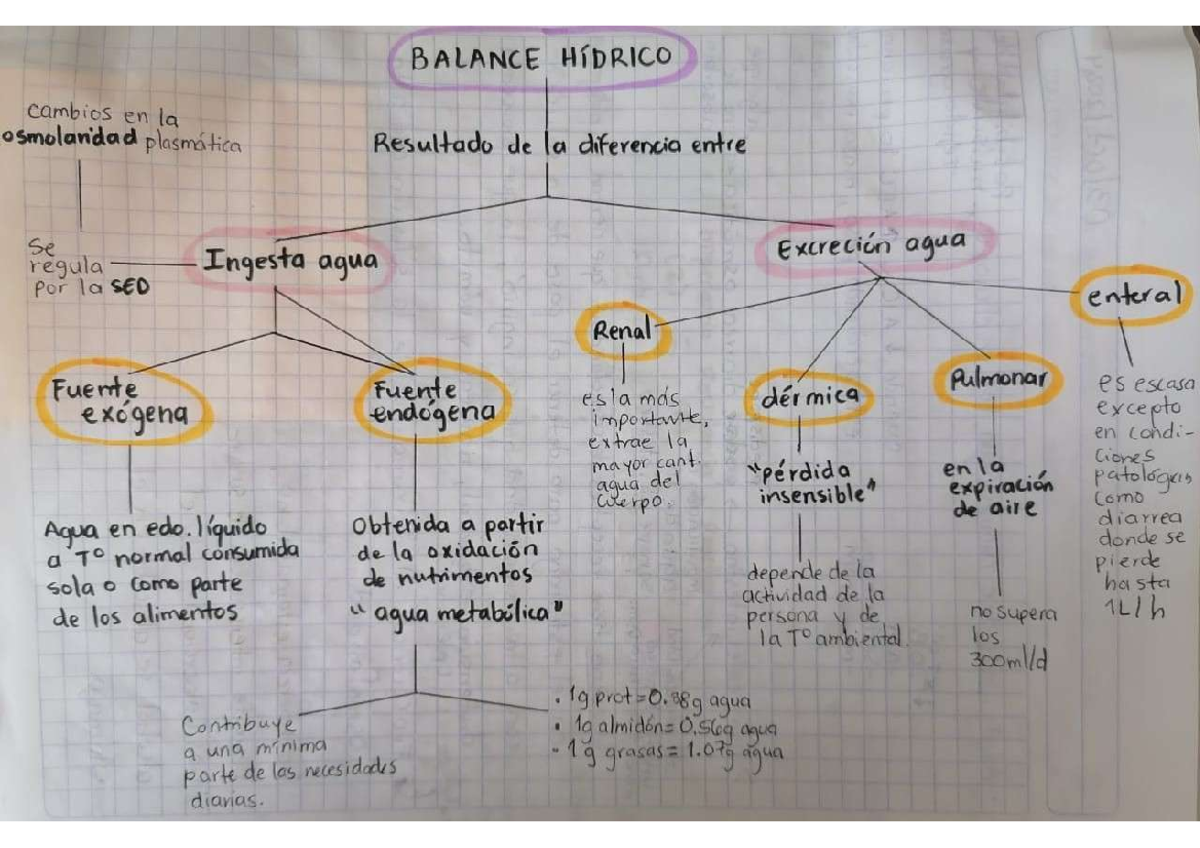 BALANCE HÍDRICO
Resultado de la diferencia entre
cambios en la
osmolaridad plasmática
Se
regula
por la SED
Ingesta agua
Fuente
exógena
Agua en edo. líquido
a T° normal consumida
sola o como parte
de los alimentos
Fuente
endógena
Obtenida a partir
de la oxidación
de nutrimentos
"agua metabólica"
Contribuye
a una mínima
parte de las necesidades
diarias.
• 1g prot = 0.38g agua
• 1g almidón = 0.56g agua
- 1g grasas = 1.07g agua
Excreción agua
Renal
es la más
importante,
extrae la
mayor cant.
agua del
cuerpo.
dérmica
"pérdida
insensible"
depende de la
actividad de la
persona y de
la T° ambiental.
Pulmonar
en la
expiración
de aire
no supera
los
300ml/d
enteral
es escasa
excepto
en condi-
ciones
patológicas
como
diarrea
donde se
pierde
hasta
1L/h